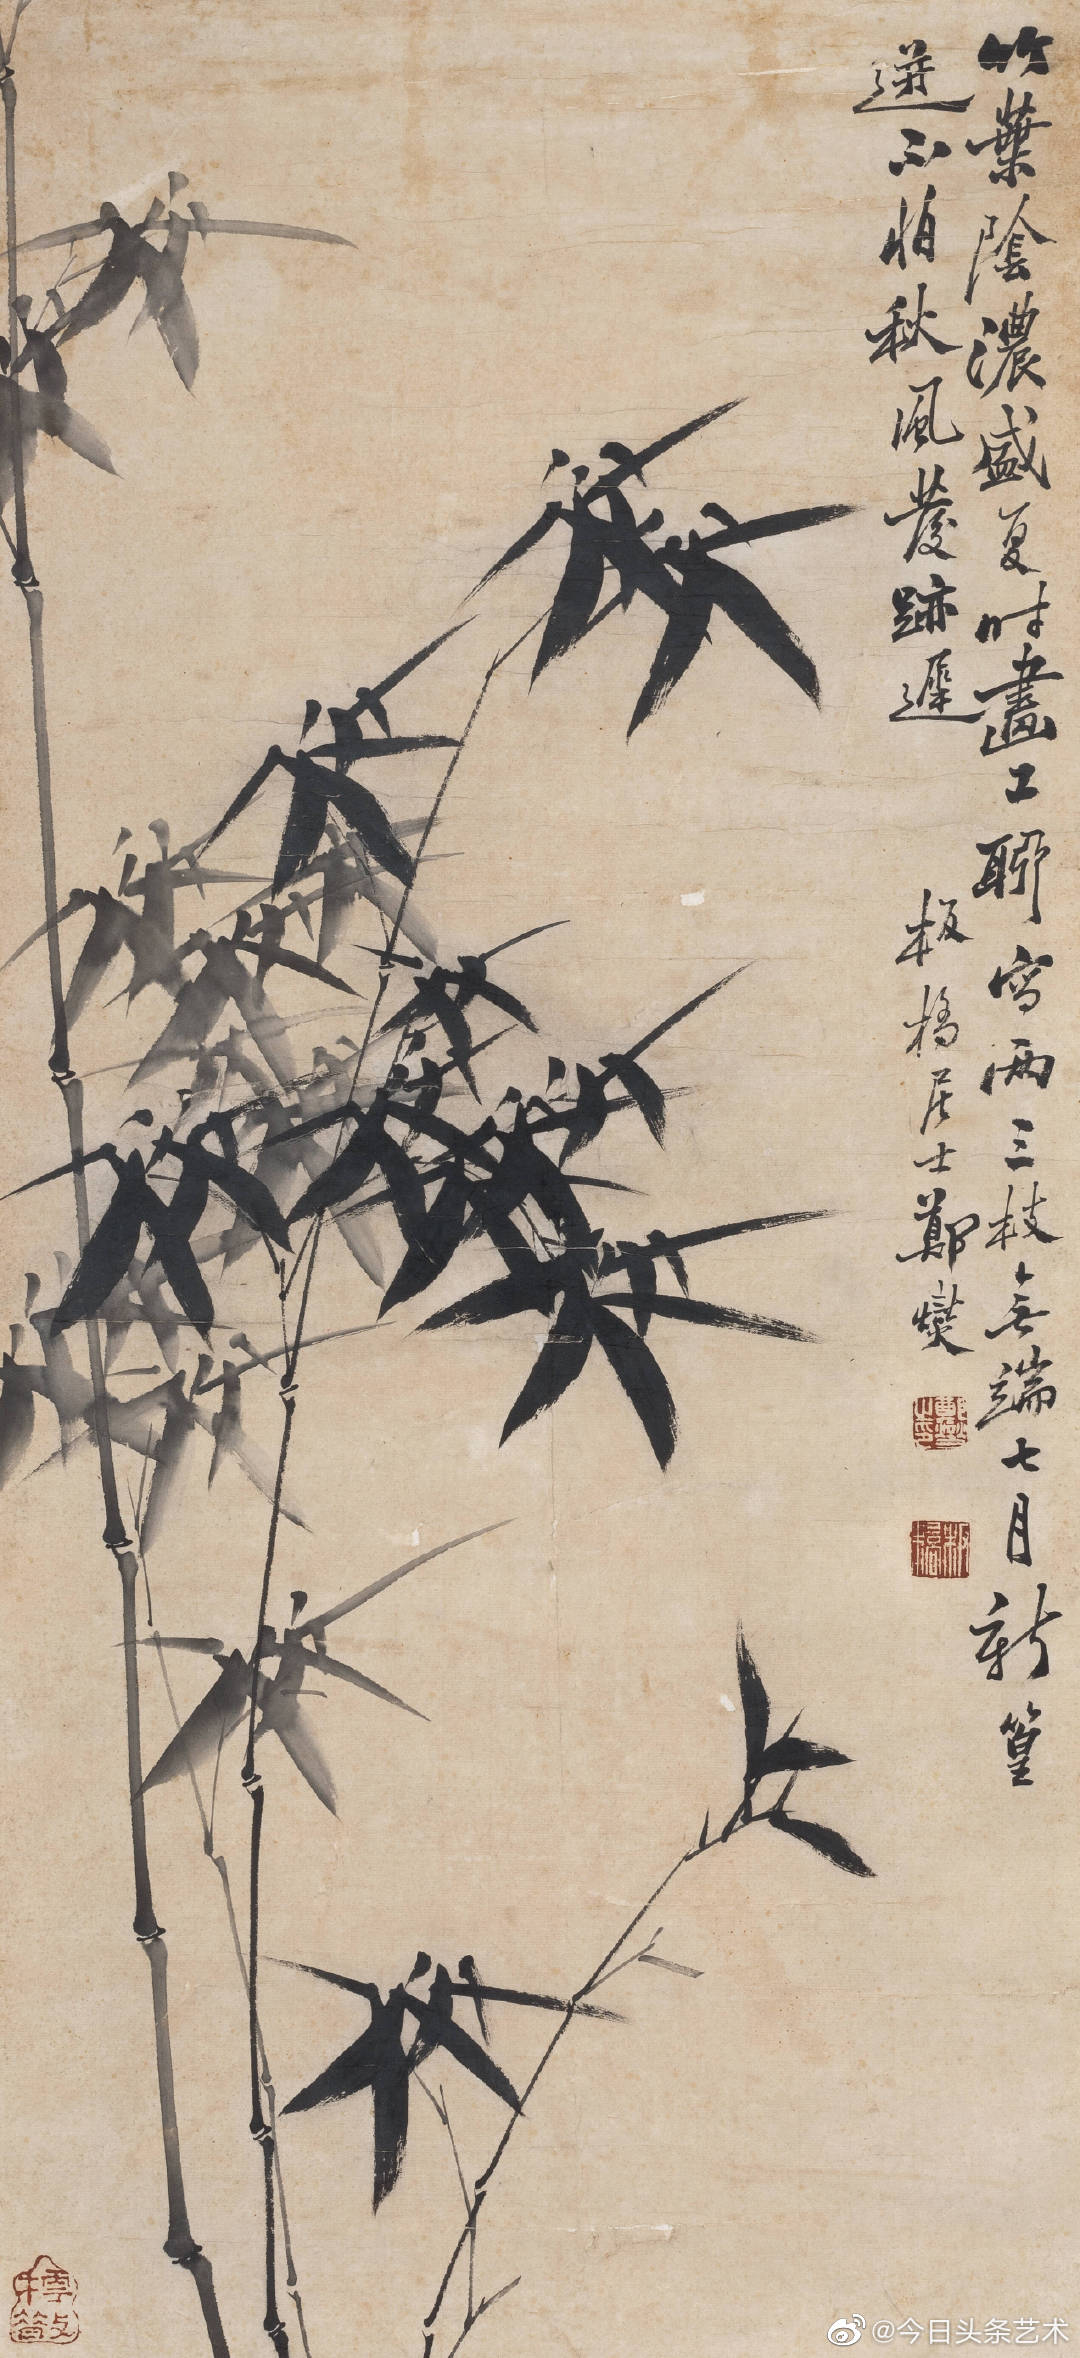 竹葉陰濃盛夏时畫工聊寫兩三枝無端七月新篁
迸不怕秋風發跡遲
板橋居士鄭燮
鄭燮之印
板橋
@今日头条艺术